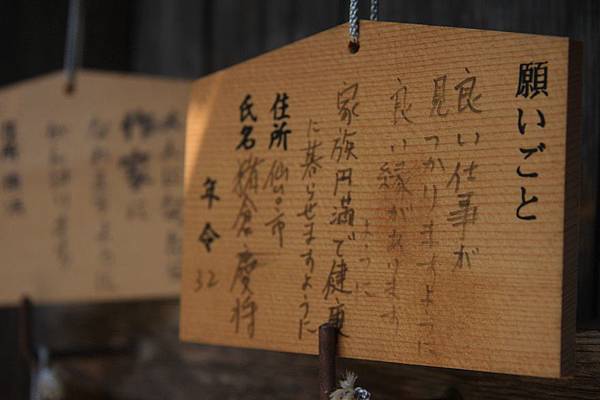 願いごと
良い仕事が
見つかりますように
良い縁があります
ように
家族円満で健康
に暮らせますように
住所 仙台市
氏名 猪倉慶将
年令 32
作家に
なれますように